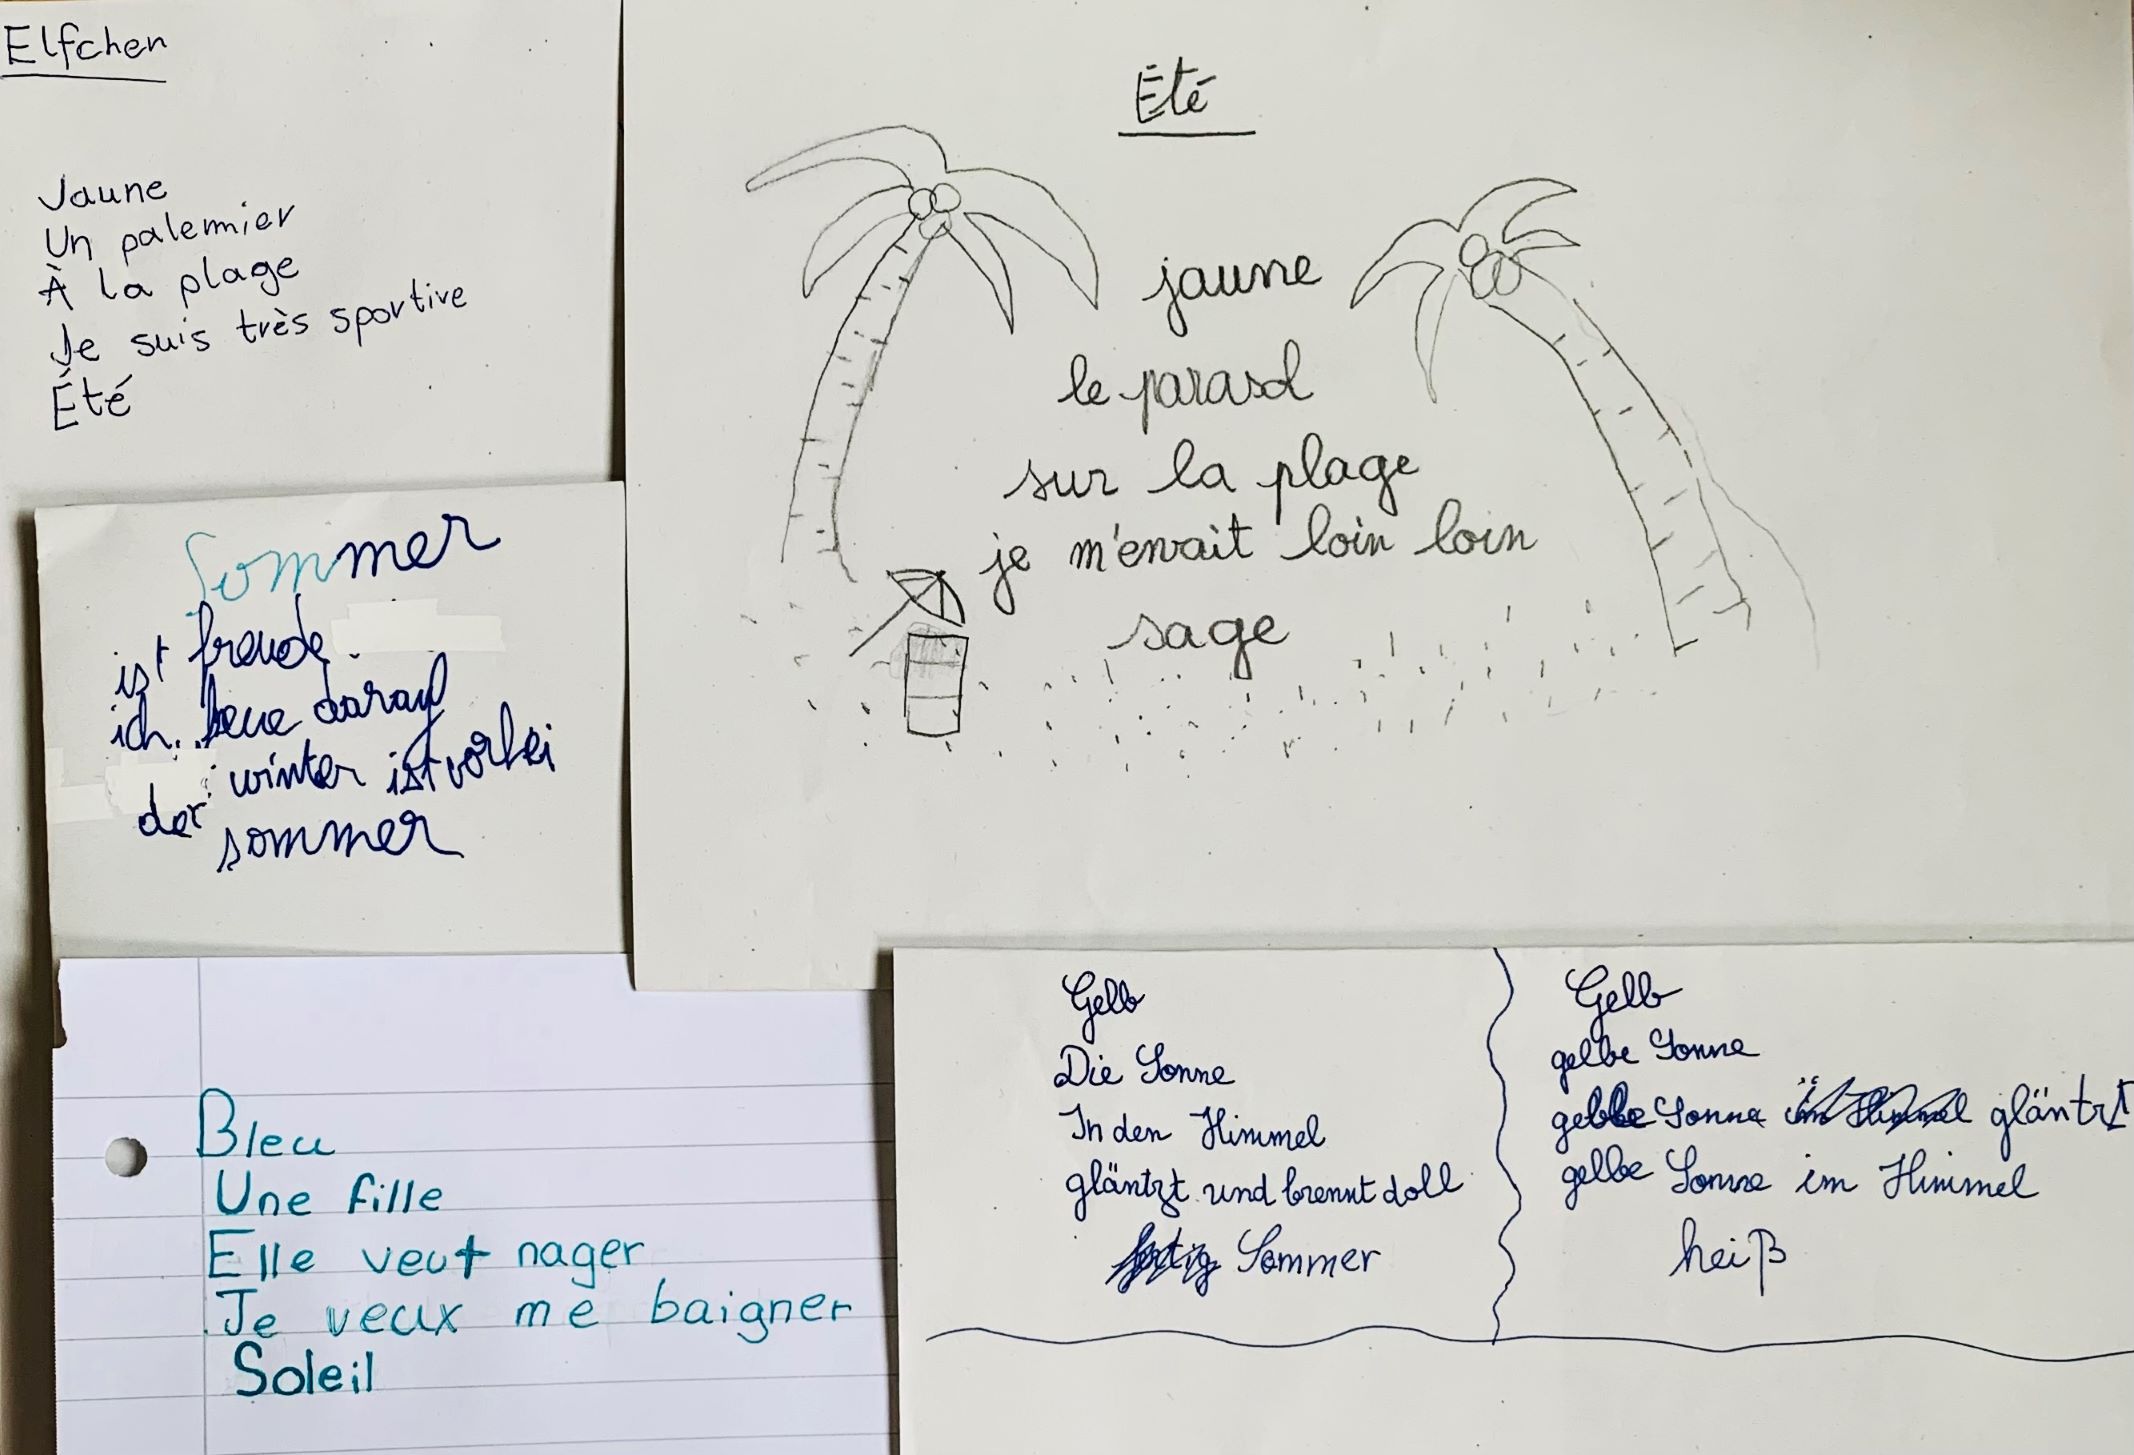 Elfchen
Jaune
Un palemier
À la plage
Je suis très sportive
Été
Été
jaune
le parasol
sur la plage
je m'envait loin loin
sage
Sommer
ist freude
ich freue darauf
der winter ist vorbei
sommer
Bleu
Une fille
Elle veut nager
Je veux me baigner
Soleil
Gelb
Die Sonne
In den Himmel
gläntzt und brennt doll
fertig Sommer
Gelb
gelbe Sonne
gelbe Sonne im Himmel gläntzt
gelbe Sonne im Himmel
heiß